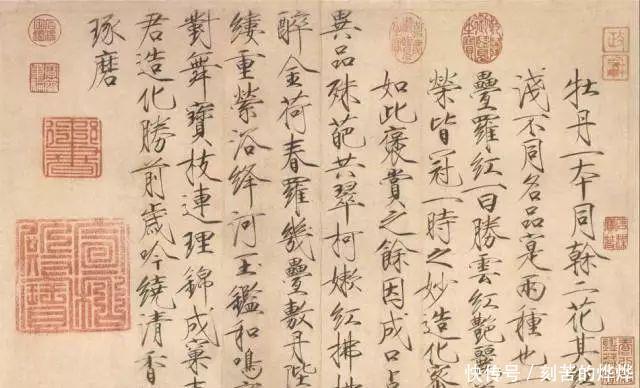 牡丹一本同榦二花其
淺不同名品寔兩種也
疊羅紅一曰勝雲紅艷麗
榮皆冠一時之妙造化密
如此褒賞之餘因成口占
異品殊葩共翠柯嫩紅拂拂
醉金荷春羅幾疊敷丹陛
縷重縈浴絳河玉鑑和鳴鸞
對舞寶枝連理錦成窠東
君造化勝前歲吟繞清香
琢磨
快传号 / 刻苦的烨烨